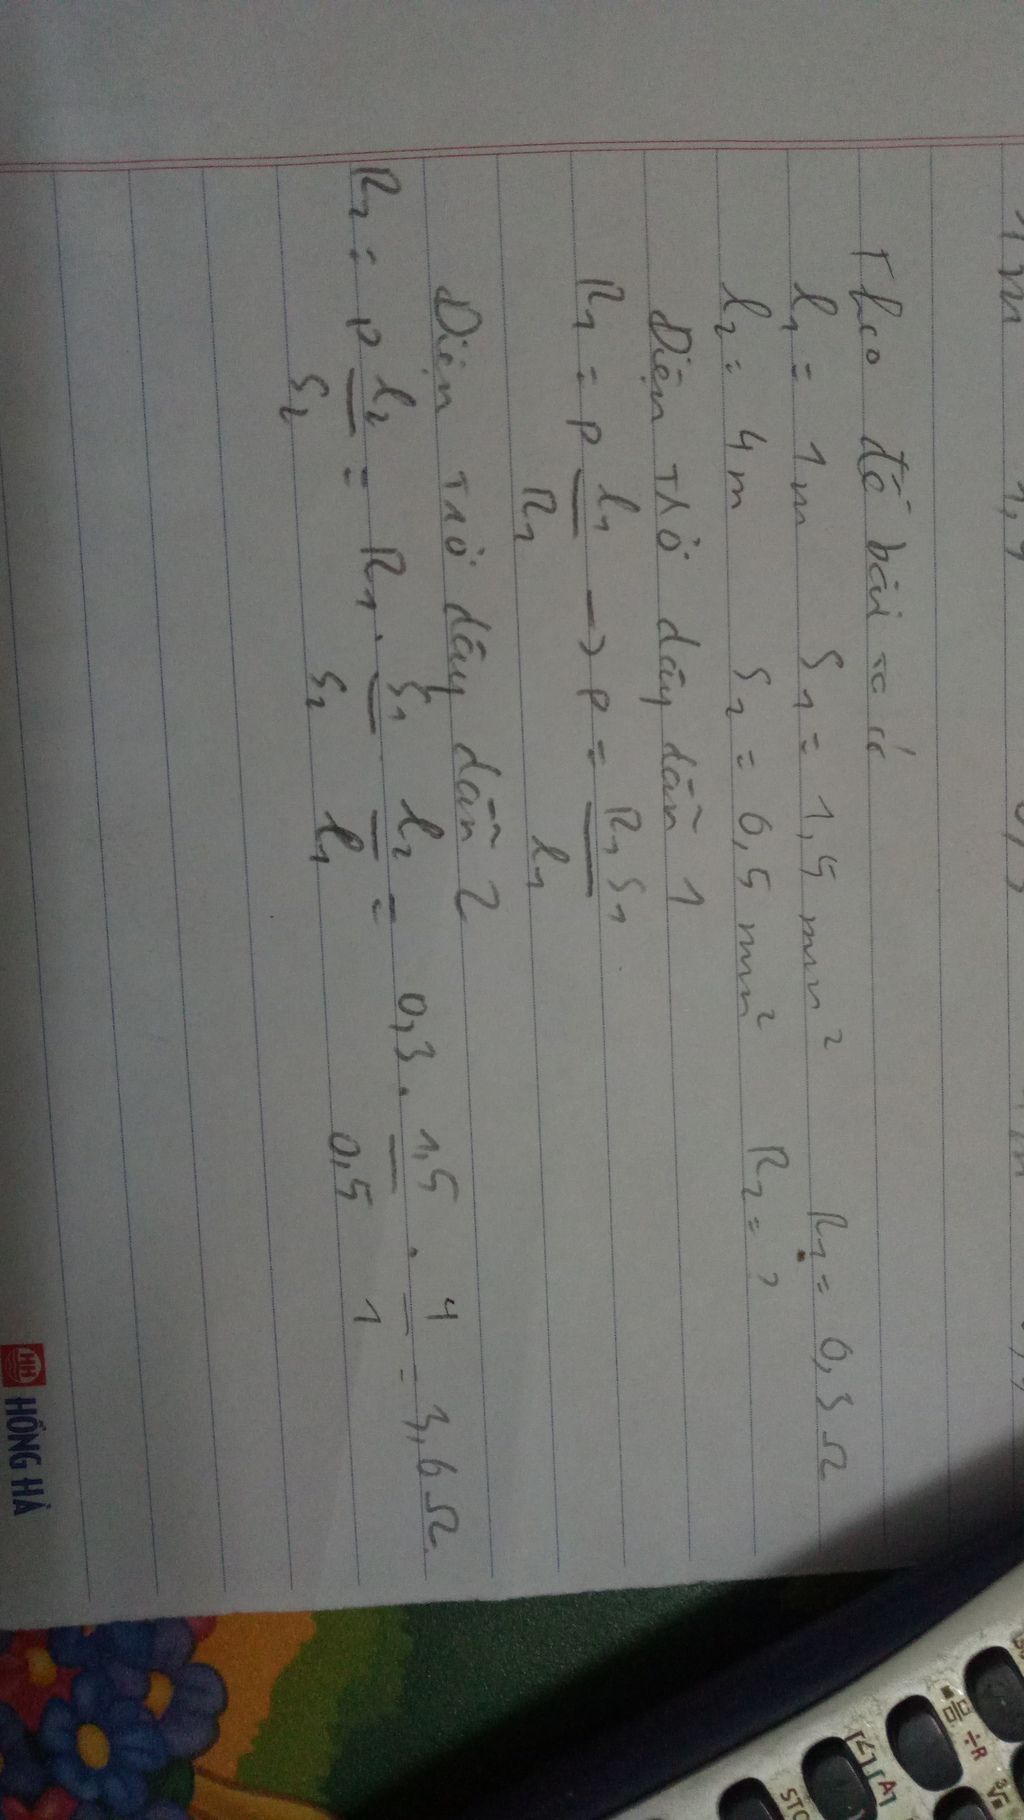 Theo đề bài ta có
l₁ = 1m S₁ = 1,5 mm² R₁ = 0,3 Ω
l₂ = 4m S₂ = 0,5 mm² R₂ = ?
Điện trở dây dẫn 1
R₁ = p l₁/R₁ → p = R₁S₁/l₁
Điện trở dây dẫn 2
R₂ = p l₂/S₂ = R₁ . S₁/S₂ l₂/l₁ = 0,3 . 1,5/0,5 . 4/1 = 3,6 Ω
HH HỒNG HÀ
÷R
³√
STO